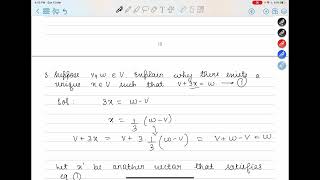 3. Suppose v, w ∈ V. Explain why there exists a
unique x ∈ V such that v+3x = w → ①
Sol:   3x = w-v
x = 1/3 (w-v)
v+3x = v + 3 1/3 (w-v) = v+w-v = w
Let x' be another vector that satisfies
eq ①